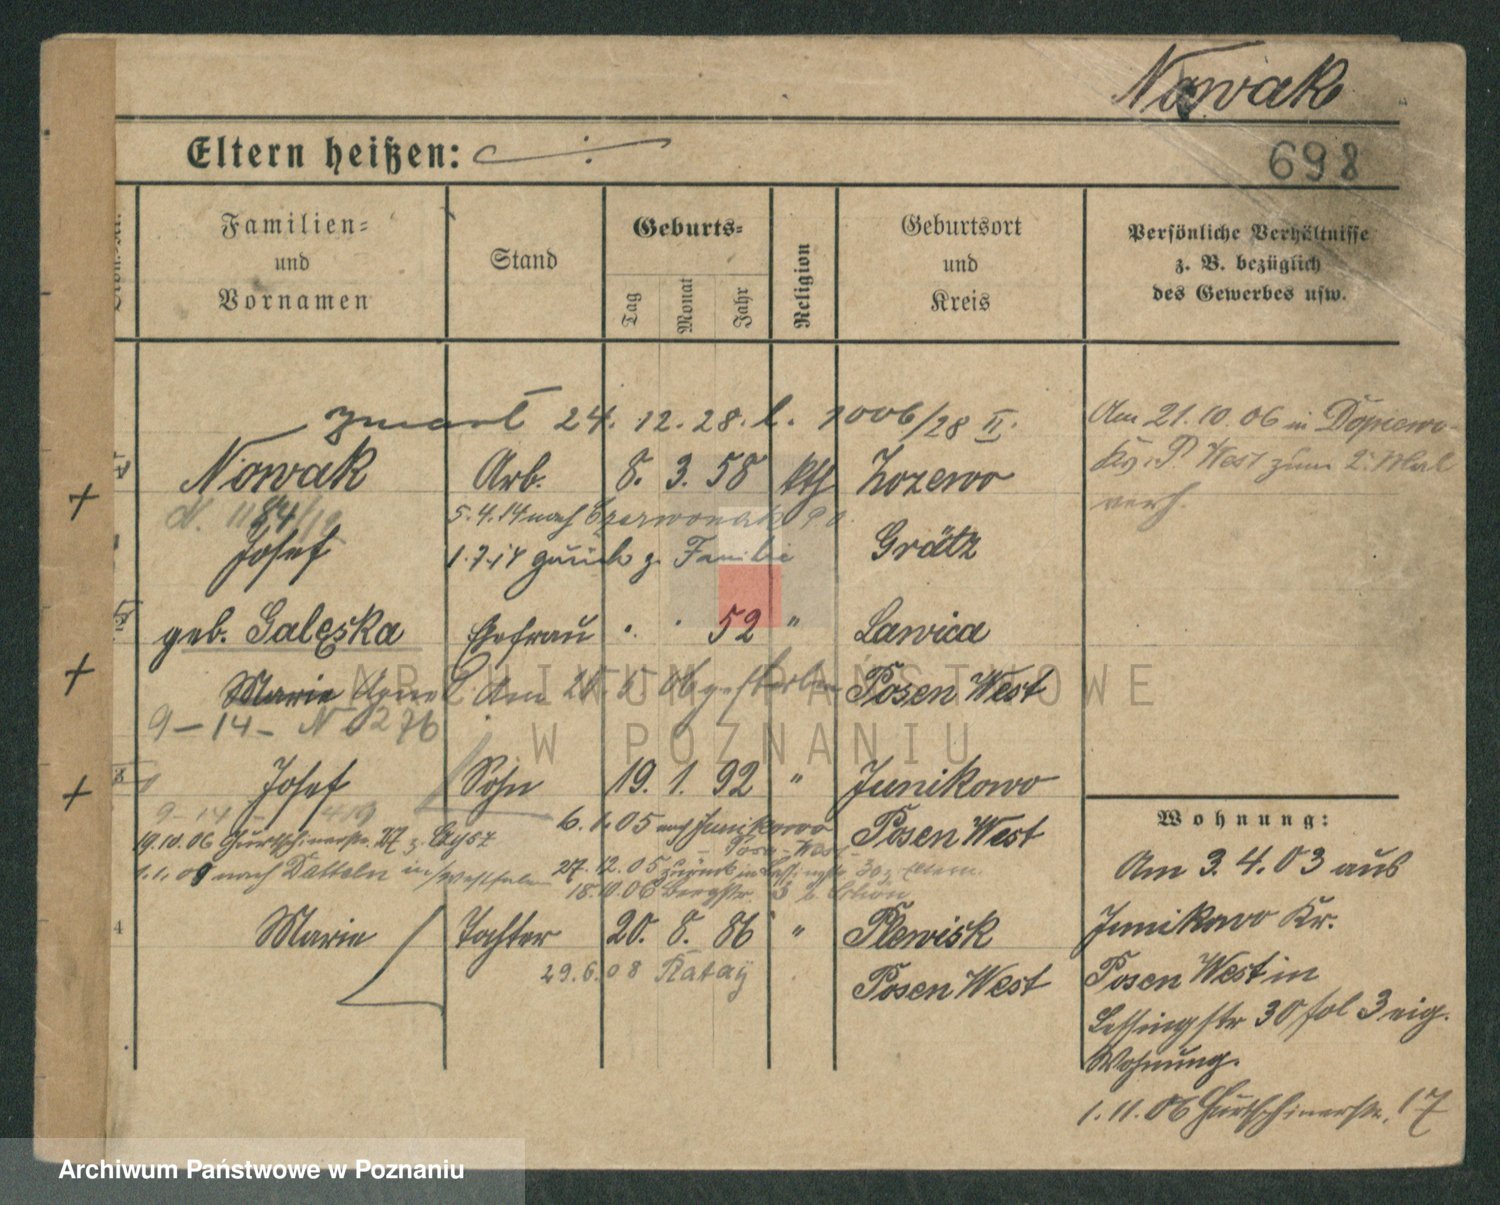 Nowak
698
Eltern heißen:
Familien=
und
Vornamen
Stand
Geburts=
Tag
Monat
Jahr
Religion
Geburtsort
und
Kreis
Persönliche Verhältnisse
z. B. bezüglich
des Gewerbes usw.
zmarł 24. 12. 28. l. 1006/28 II.
Am 21. 10. 06 in Dopiewo
Kr. P. West zum 2. Mal
verh.
Nowak Arb. 8. 3. 58 kth
5. 4. 14 nach Czerwonak
Josef
Grätz
1. 7. 14 zurück z. Familie
geb. Galęska Ehefrau 52 " Lawica
Marie Agnes Am 06 gestorben Posen West
9-14- N
Josef Sohn 19. 1. 92 " Junikowo
6. 1. 05 nach Junikowo
Posen West
Posen-West
19.10.06 Gurtschinerstr. 17
27. 12. 05 zurück in Lessingstr. 30 z. Eltern.
1.1.08 nach Datteln in Westfalen
18.10.06 Bergstr.
4 Marie Tochter 20. 8. 86 " Plewisk
29.6.08 Rataj
Posen West
Wohnung:
Am 3. 4. 03 aus
Junikowo Kr.
Posen West in
Lessingstr 30 fol 3 eig.
Wohnung.
1. 11. 06 Gurtschinerstr. 17
ARCHIWUM PAŃSTWOWE
W POZNANIU
Archiwum Państwowe w Poznaniu